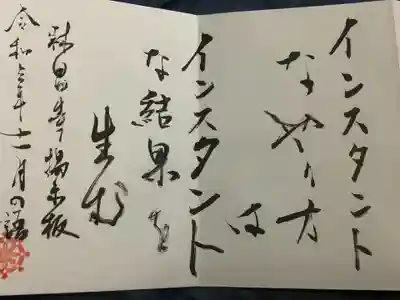 インスタント
なやり方
は
インスタント
な結果を
生む
秋昌寺掲示板
令和六年十一月の語